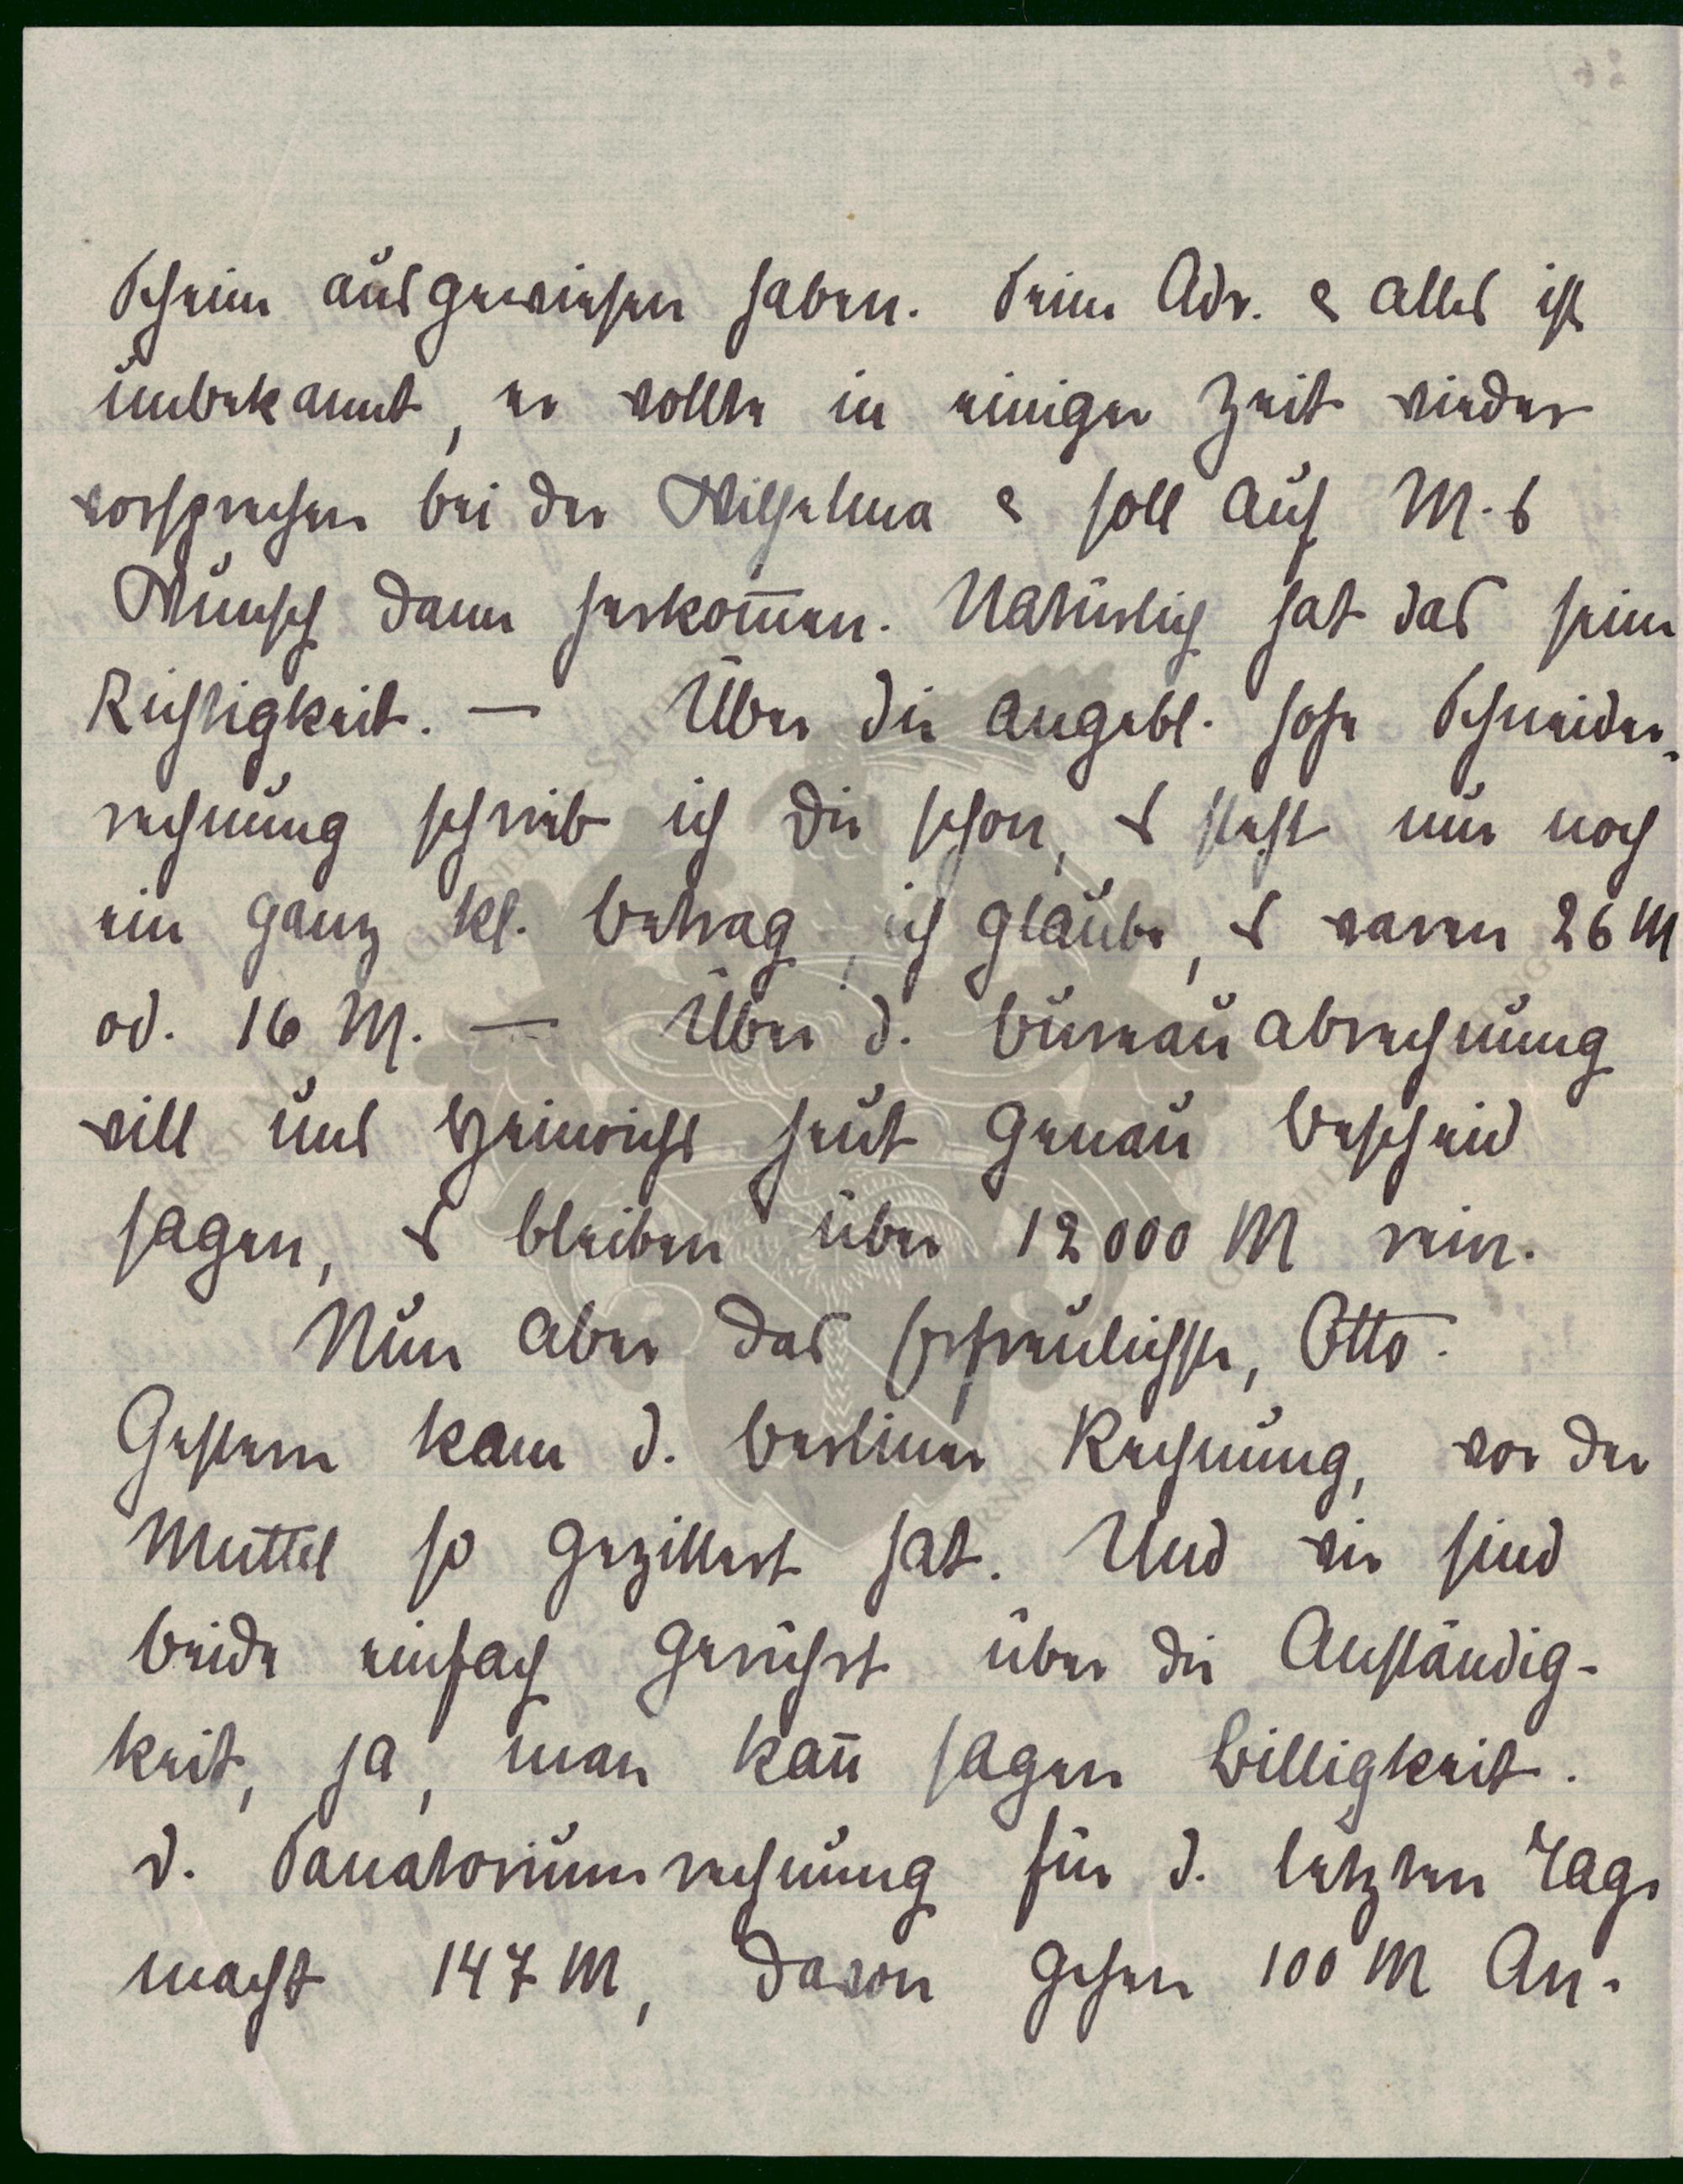 Schein ausgewiesen haben. Seine Adr. & alles ist
unbekannt, er wollte in einiger Zeit wieder
vorsprechen bei der Wilhelma & soll auf M.s
Wunsch dann herkom̄en. Natürlich hat das seine
Richtigkeit. — Über die angebl. hohe Schneider-
rechnung schrieb ich Dir schon, es steht nur noch
ein ganz kl. Betrag, ich glaube, es waren 26 M
od. 16 M. — Über d. Bureauabrechnung
will uns Heinrichs heut genau Bescheid
sagen, es bleiben über 12000 M rein.
Nun aber das Erfreulichste, Otto.
Gestern kam d. Berliner Rechnung, vor der
Muttel so gezittert hat. Und wir sind
beide einfach gerührt über die Anständig-
keit, ja, man kan̄ sagen Billigkeit.
D. Sanatoriumrechnung für d. letzten Tage
macht 147 M, davon gehen 100 M An-